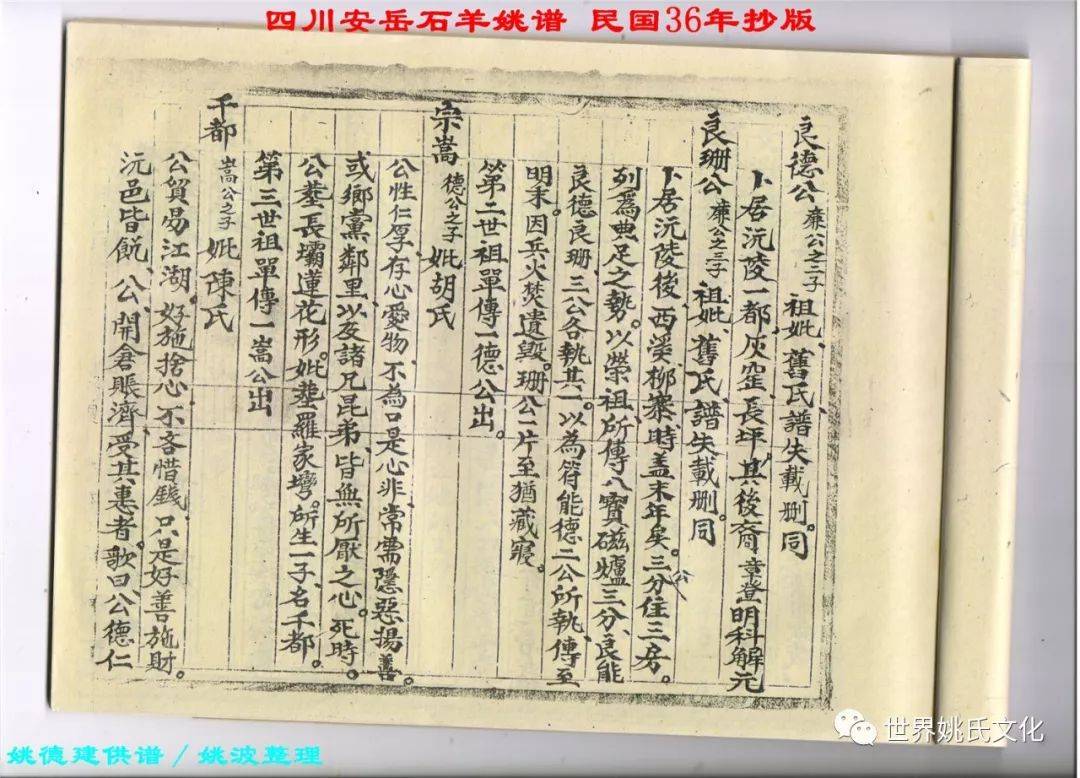 四川安岳石羊姚谱 民国36年抄版
良德公 蔴公之二子 祖妣、舊氏、譜失載删。同
卜居沅陵一都、灰窑、長坪、其後裔章登明科解元
良珊公 蔴公之三子 祖妣、舊氏、譜失載删。同
卜居沅陵後西溪、柳寨、時盖末年矣。三分住三房。
列為典足之勢。以榮祖、所傳八寶磁爐三分、良能
良德良珊、三公各執其一。以為符能德二公所執、傳至
明末。因兵火焚遺毀。珊公一片至猶藏寢。
第二世祖單傳一德公出。
宗嵩 德公之子 妣胡氏
公性仁厚、存心愛物、不為口是心非、常需隱惡揚善。
或鄉黨鄰里、以及諸兄昆弟、皆無所厭之心。死時。
公塟長壩蓮花形。妣塟羅家灣。所生一子、名千都。
第三世祖單傳一嵩公出
千都 嵩公之子 妣陳氏
公貿易江湖。好施捨心、不吝惜錢、只是好善施財。
沅邑皆飢、公、開倉賬濟、受其惠者。歌曰、公德仁
世界姚氏文化
姚德建供谱／姚波整理